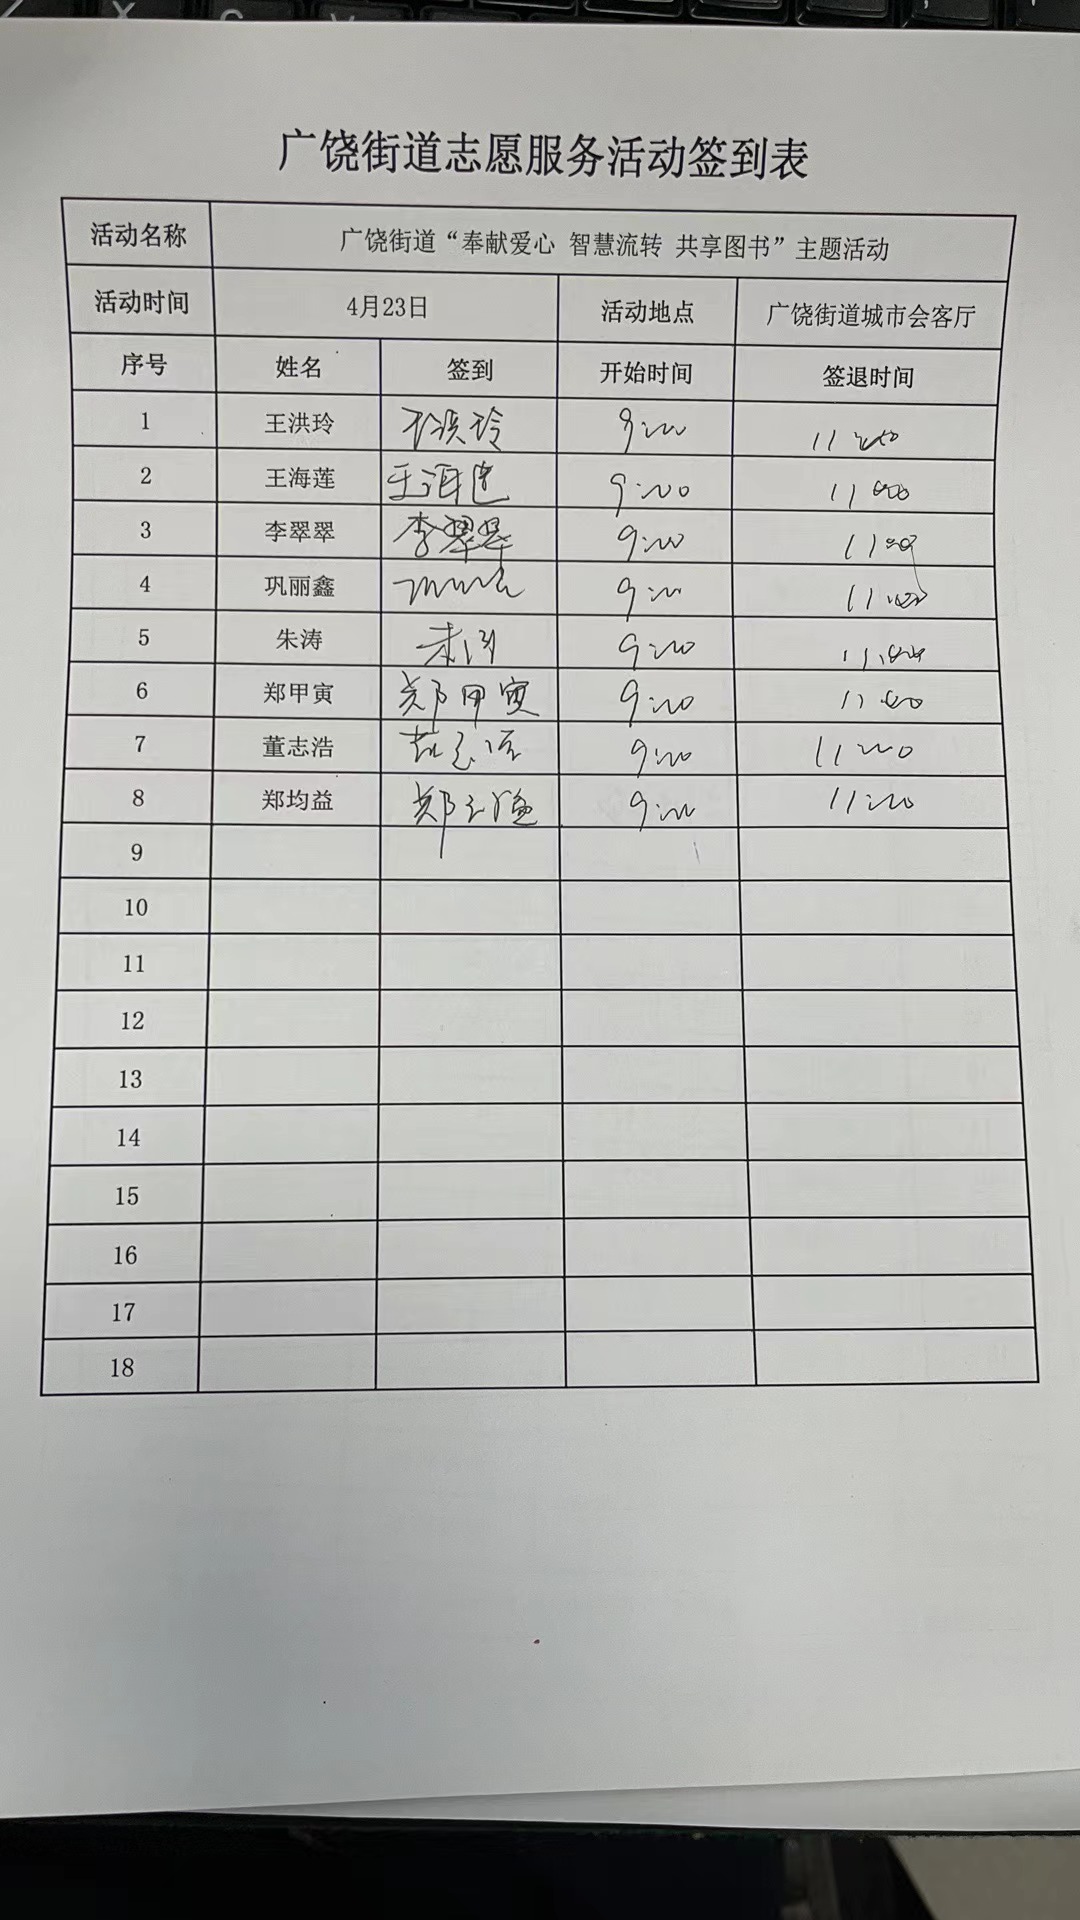 广饶街道志愿服务活动签到表
活动名称 广饶街道“奉献爱心 智慧流转 共享图书”主题活动
活动时间 4月23日 活动地点 广饶街道城市会客厅
序号 姓名 签到 开始时间 签退时间
1 王洪玲 王洪玲 9:00 11:00
2 王海莲 王海莲 9:00 11:00
3 李翠翠 李翠翠 9:00 11:00
4 巩丽鑫 9:00 11:00
5 朱涛 朱涛 9:00 11:00
6 郑甲寅 郑甲寅 9:00 11:00
7 董志浩 董志浩 9:00 11:00
8 郑均益 郑均益 9:00 11:00
9
10
11
12
13
14
15
16
17
18